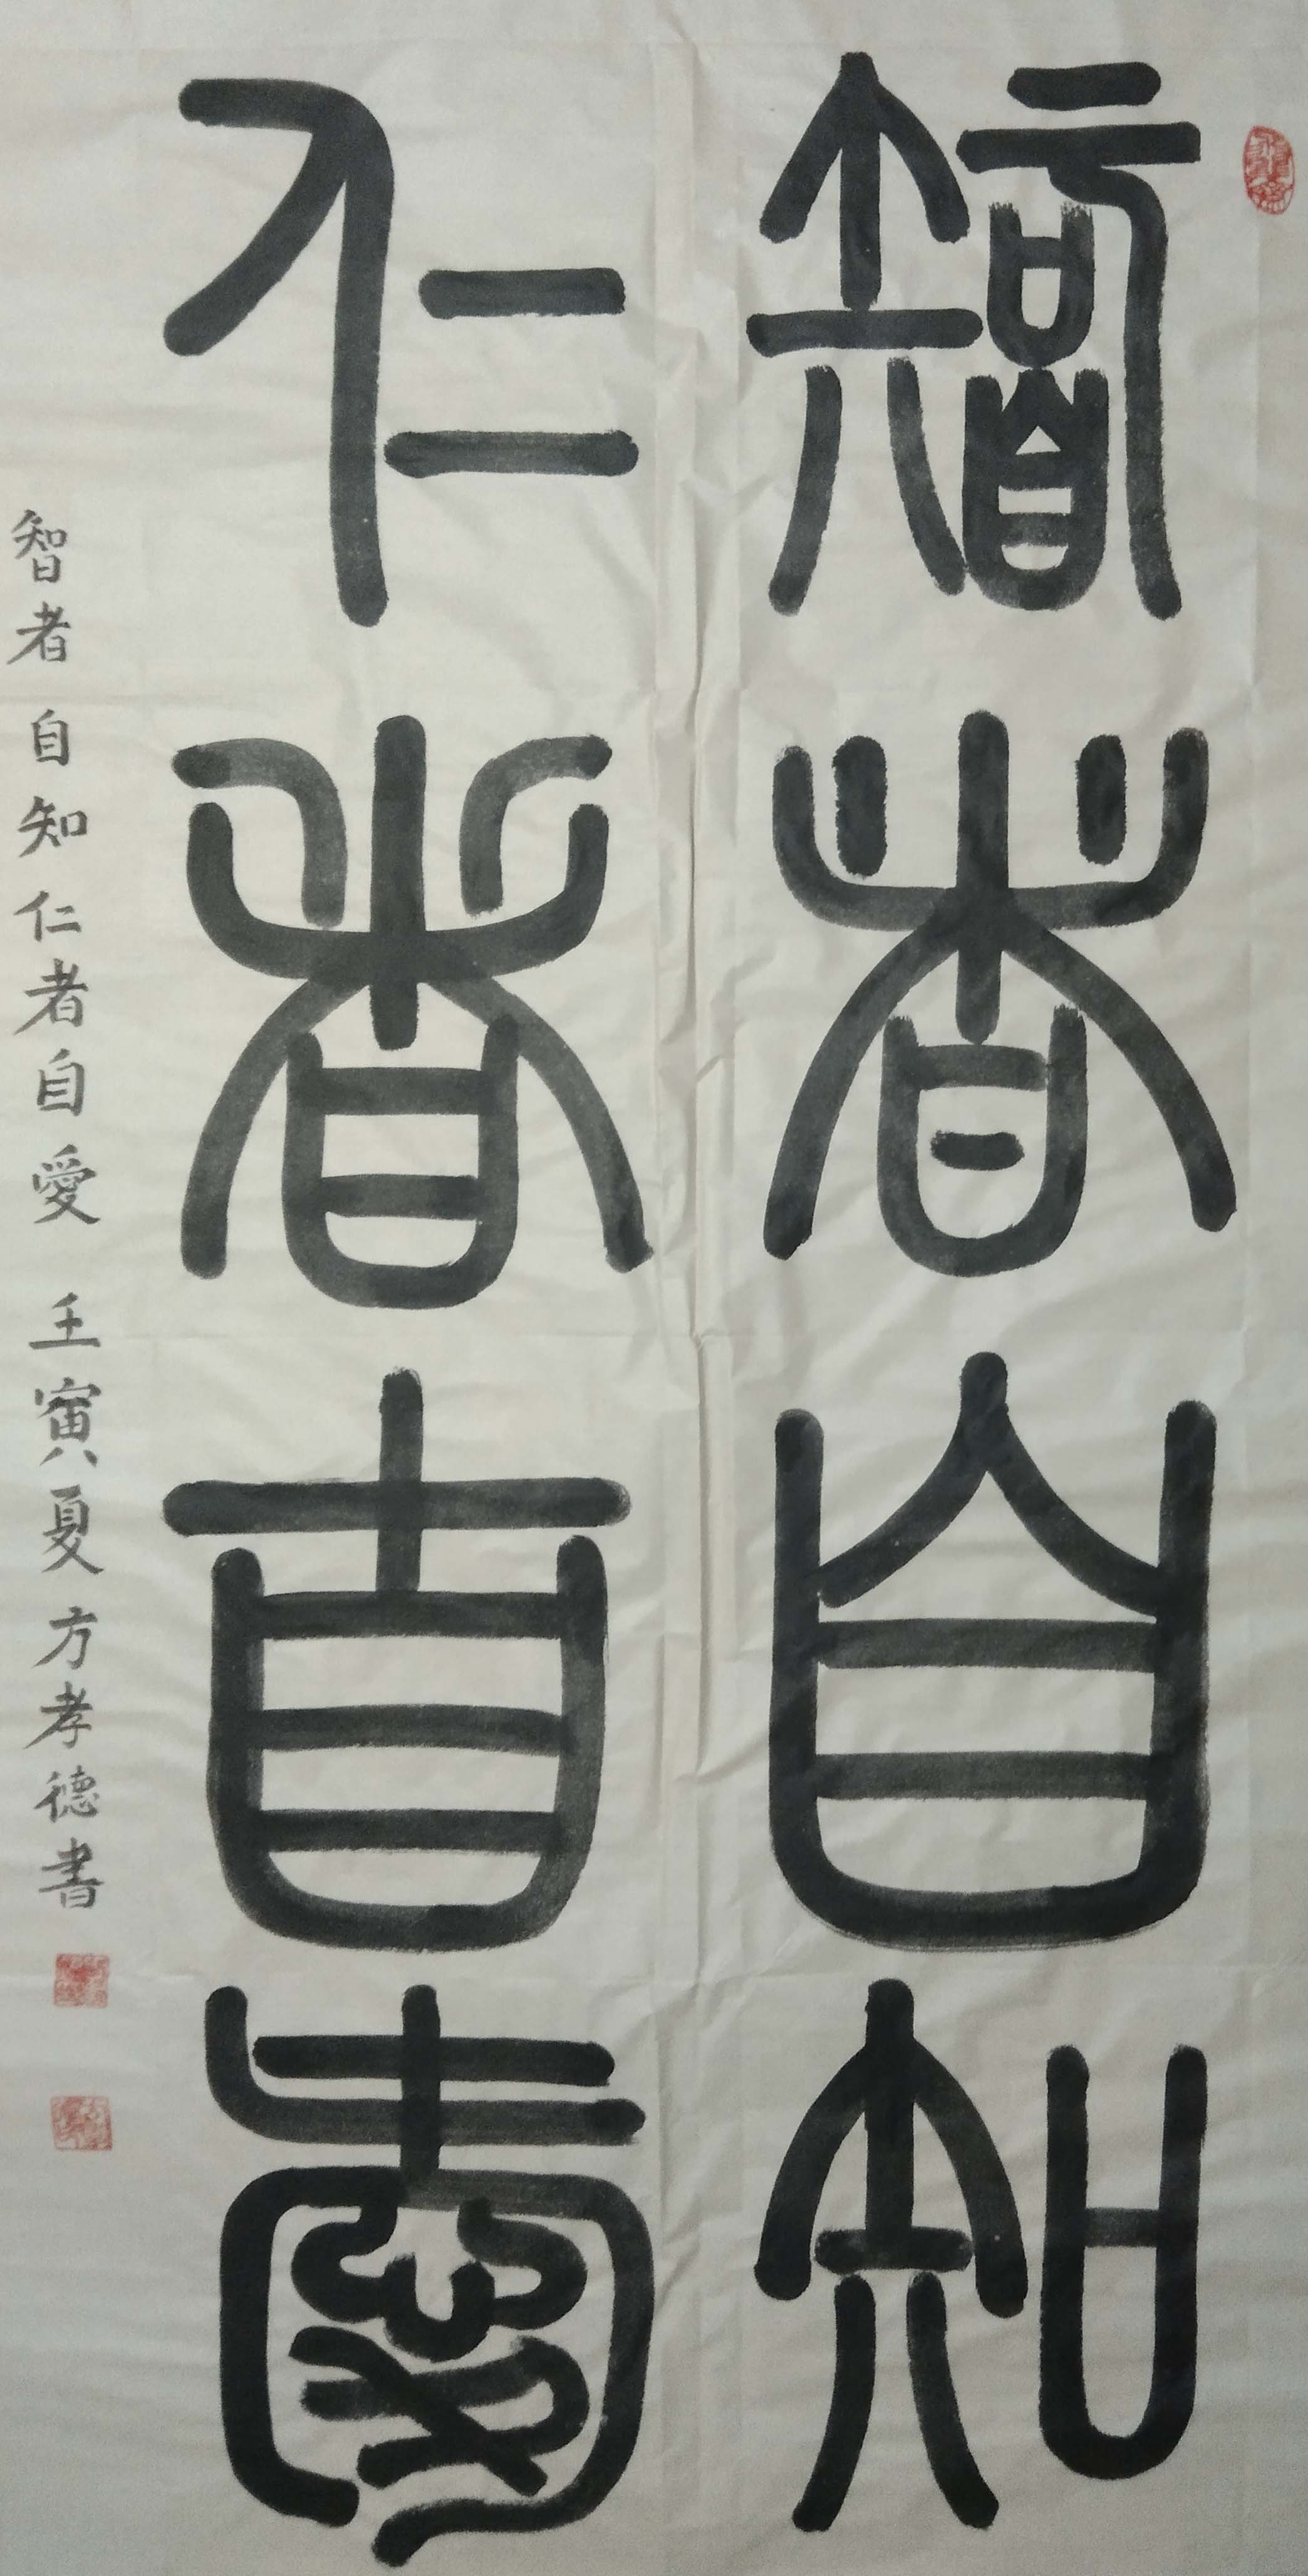 智者自知
仁者自愛
智者自知仁者自愛 壬寅夏方孝德書